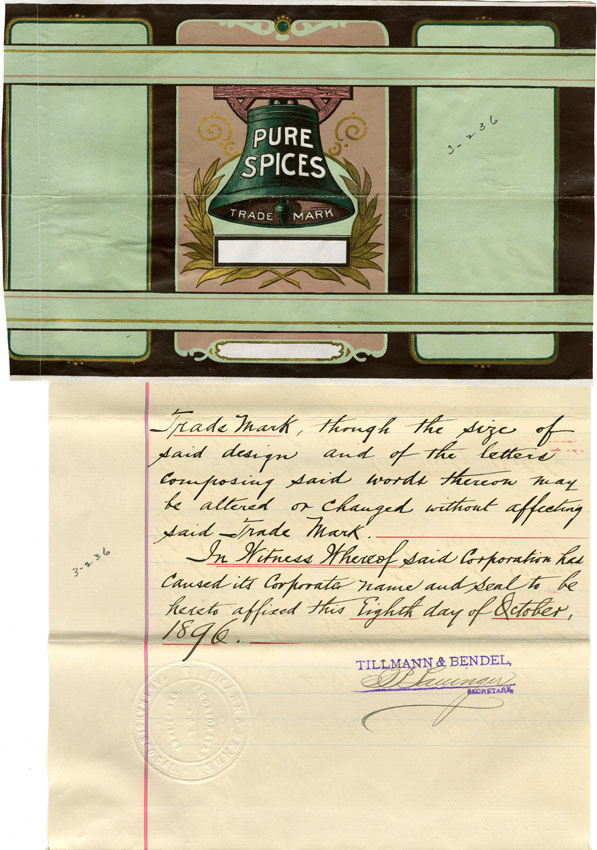 PURE
SPICES
TRADE MARK
3-236
Trade Mark, though the size of
said design and of the letters
composing said words thereon may
be altered or changed without affecting
said Trade Mark.
In Witness Whereof said Corporation has
caused its Corporate name and seal to be
hereto affixed this Eighth day of October,
1896.
3-236
TILLMANN & BENDEL,
SECRETARY